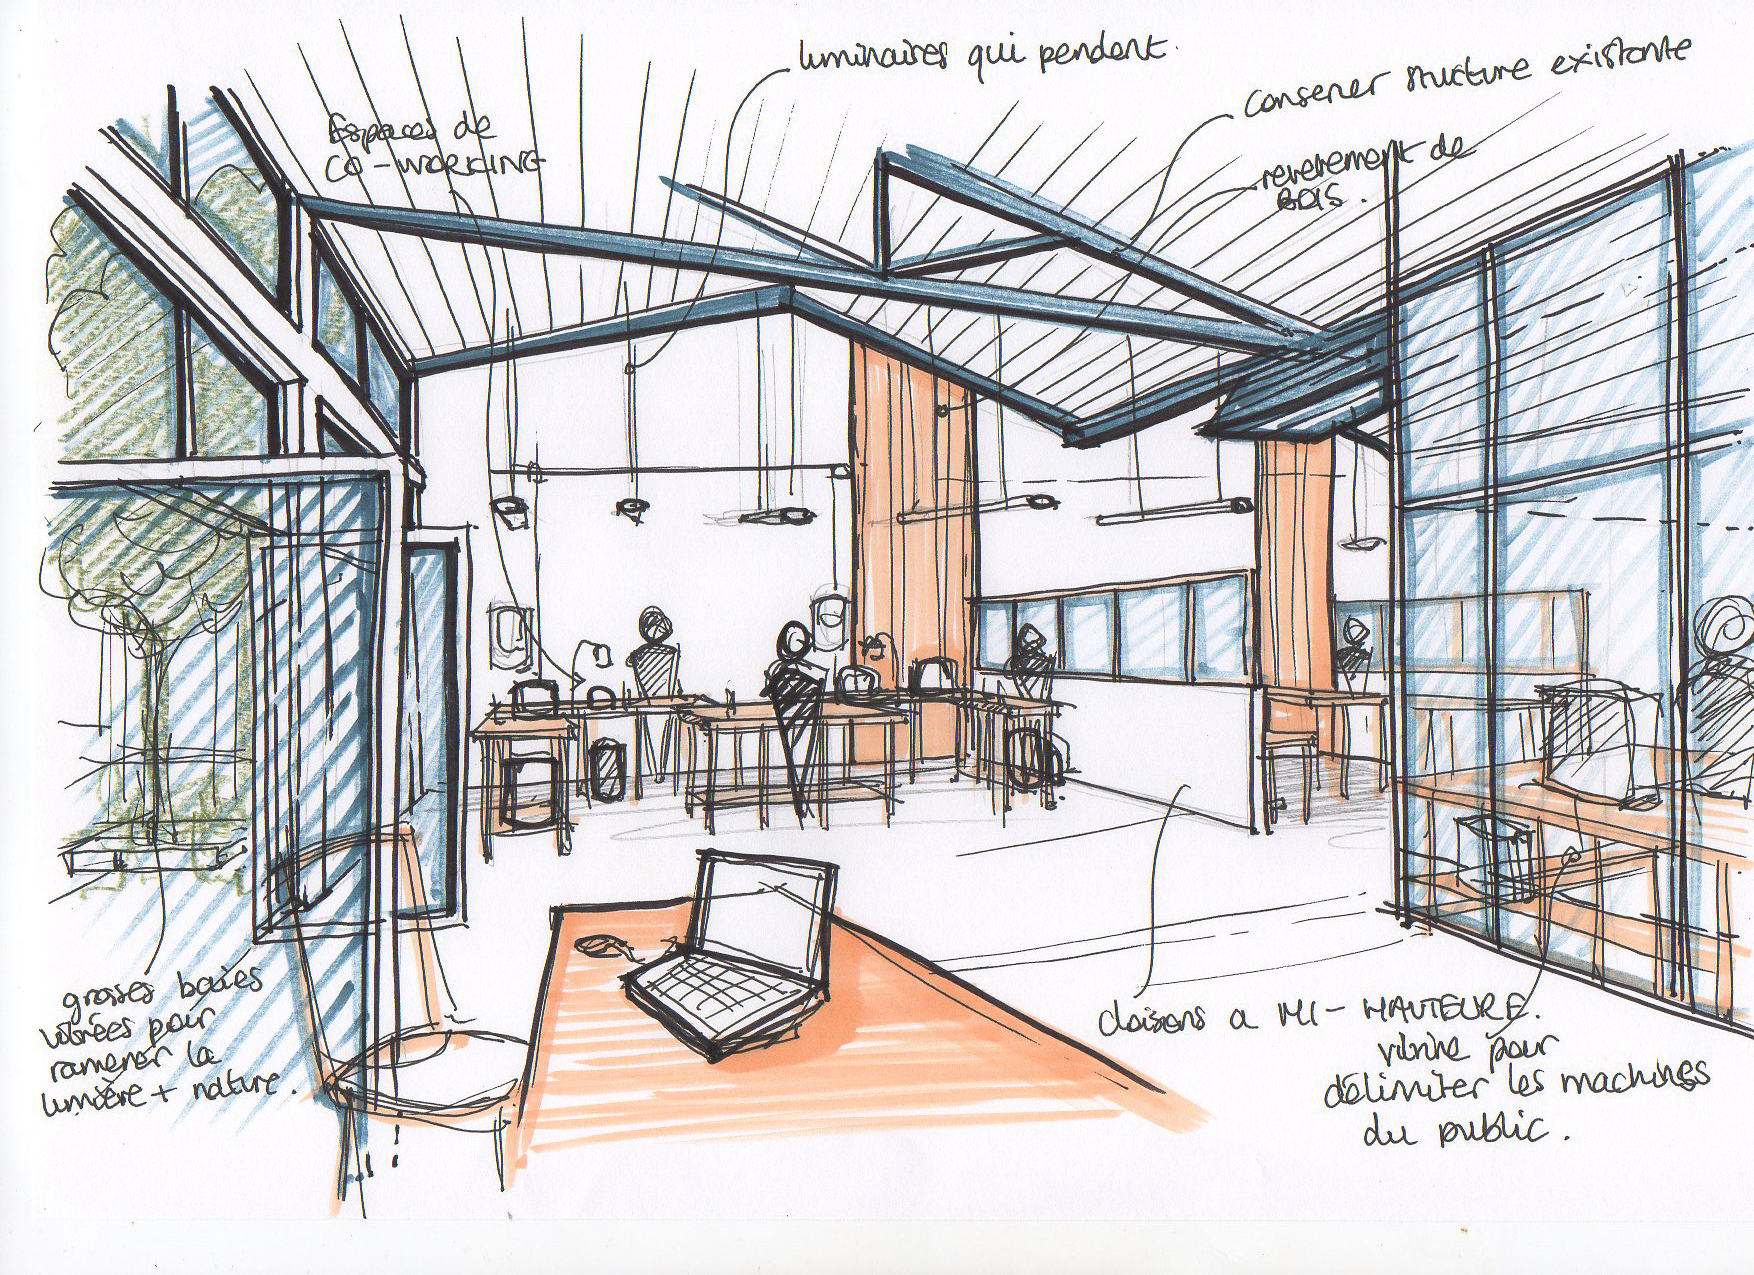 luminaires qui pendent.
conserver structure existante
Espaces de
CO-WORKING
revetement de
BOIS.
grosses baies
vitrées pour
ramener la
lumière + nature.
cloisons a MI-HAUTEURE.
vitrine pour
délimiter les machines
du public.